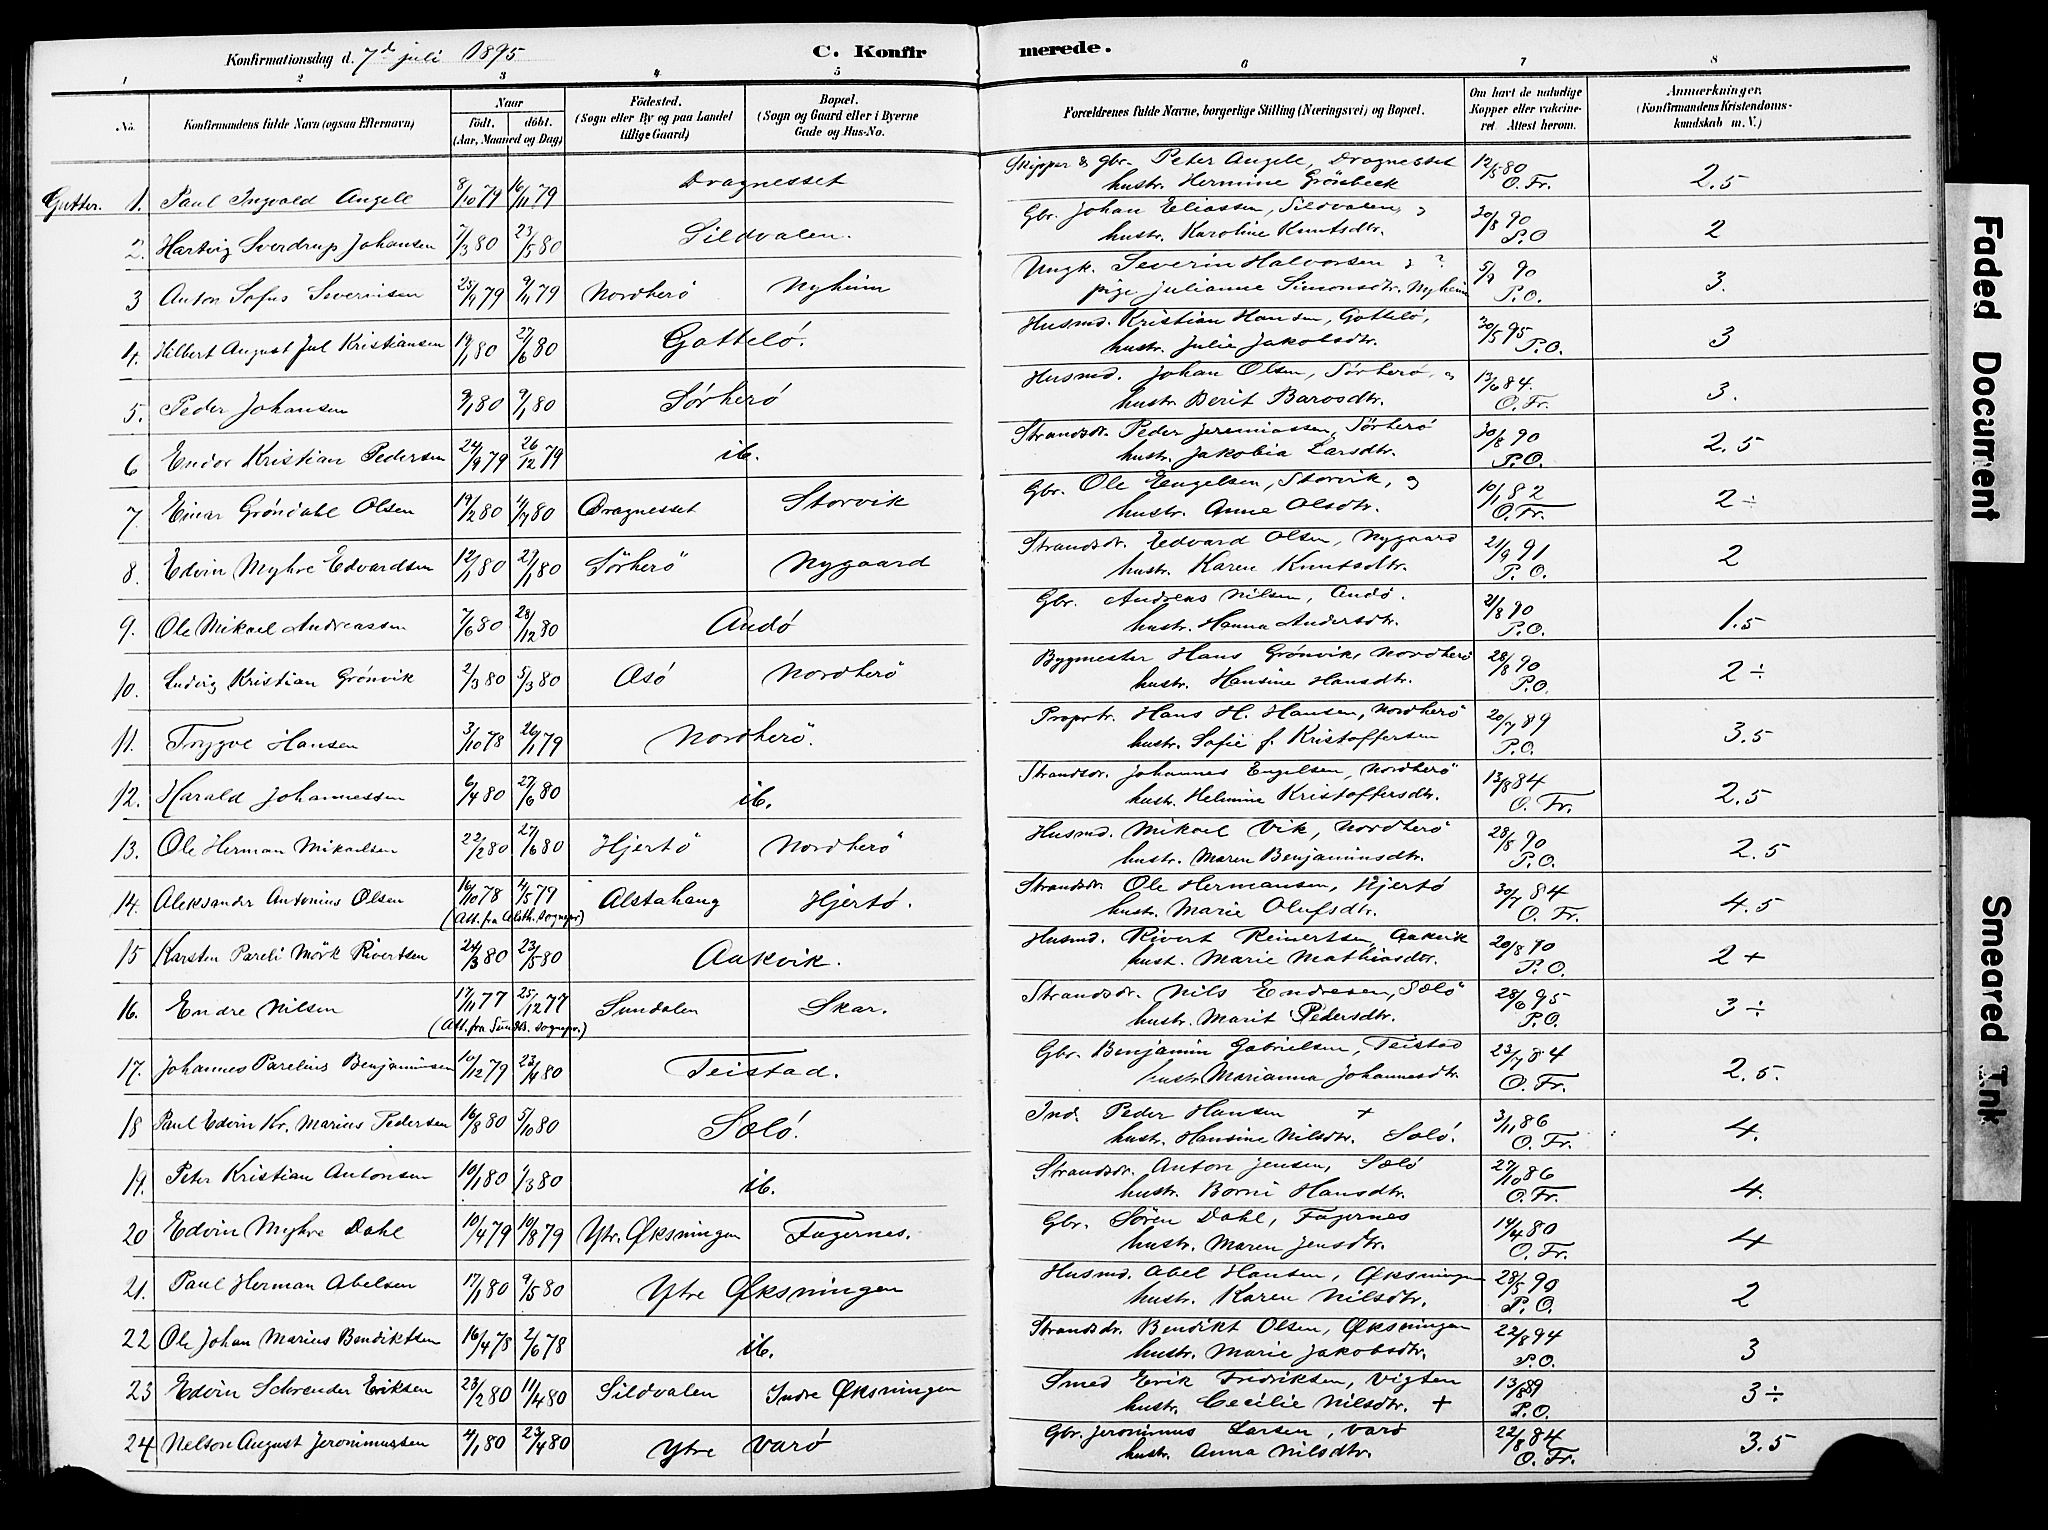 Konfirmationsdag d. 7de juli 1895
C. Konfirmerede.
1 2 3 4 5 6 7 8
No. Konfirmandens fulde Navn (ogsaa Efternavn) Naar født. døbt. (Aar, Maaned og Dag) Fødested. (Sogn eller By og paa Landet tillige Gaard) Bopæl. (Sogn og Gaard eller i Byerne Gade og Hus-No. Forældrenes fulde Navne, borgerlige Stilling (Næringsvei) og Bopæl. Om havt de naturlige Kopper eller vakcineret. Attest herom. Anmærkninger. (Konfirmandens Kristendomskundskab m. V.)
Gutter. 1. Paul Ingvald Angell 8/10 79 16/11 79 Dragnesset Skipper & gbr. Peter Angell, Dragnesset 12/5 80
hustr. Hermine Grönbeck O. Fr. 2.5
2. Hartvig Sverdrup Johansen 7/3 80 23/5 80 Sildvalen. Gbr. Johan Eliassen, Sildvalen, & 30/8 90
hustr. Karoline Knutsdtr. P.O 2
3 Anton Sofus Severinsen 9/11 79 Nordherö Nyheim Ungk. Severin Halvorsen & ? 90
pige Julianne Simonsdtr. Nyheim P.O. 3.
4. Hilbert August Jul Kristiansen 19/1 80 27/6 80 Gottelö. Husmd. Kristian Hansen, Gottelö, 30/5 95
hustr. Julie Jakobsdtr. P.O. 3
5. Peder Johansen 9/1 80 Sörherö Husmd. Johan Olsen, Sörherö, & 13/6 84.
hustr. Berit Barosdtr. O. Fr. 3.
6 Endor Kristian Pedersen 24/9 79 26/12 79 ib. Strandsdr. Peder Jeremiassen, Sörherö 30/8 90
hustr. Jakobia Larsdtr. P.O. 2.5
7 Einar Gröndahl Olsen 19/2 80 4/7 80 Dragnesset Storvik Gbr. Ole Engelsen, Storvik, & 10/1 82
hustr. Anne Olsdtr. O. Fr. 2 ÷
8. Edvin Myhre Edvardsen 12/1 80 29/1 80 Sörherö Nygaard Strandsdr. Edvard Olsen, Nygaard 21/9 91
hustr. Karen Knutsdtr. P.O. 2
9. Ole Mikael Andreassen 7/6 80 28/12 80 Andö Gbr. Andreas Nilsen, Andö. 21/8 90
hustr. Hanna Andersdtr. P.O. 1.5
10. Ludvig Kristian Grönvik 2/3 80 5/3 80 Asö Nordherö Bygmester Hans Grönvik, Nordherö 28/8 90
hustr. Hansine Hansdtr. P.O. 2 ÷
11. Trygve Hansen 3/10 78 26/1 79 Nordherö. Proprtr. Hans H. Hansen, Nordherö 20/7 89
hustr. Sofie f. Kristoffersen P.O. 3.5
12. Harald Johannessen 6/4 80 27/6 80 ib. Strandsdr. Johannes Engelsen, Nordherö 13/8 84
hustr. Helmine Kristoffersdtr. O. Fr. 2.5
13. Ole Herman Mikaelsen 22/2 80 27/6 80 Hjertö Nordherö Husmd. Mikael Vik, Nordherö 28/8 90
hustr. Maren Benjaminsdtr. P.O. 2.5
14. Aleksander Antonius Olsen 16/10 78 4/5 79 Alstahaug Hjertö. Strandsdr. Ole Hermansen, Hjertö 30/7 84
(Att. fra Alsth. sognepr.) hustr. Marie Olufsdtr. O. Fr. 4.5
15 Karsten Pareli Mörk Rivertsen 24/3 80 23/5 80 Aakvik. Husmd. Rivert Reinertsen, Aakvik 20/8 90
hust. Marie Mathiasdtr. P.O. 2 +
16. Endre Nilsen 17/11 77 25/12 77 Sundalen Skar. Strandsdr. Nils Endresen, Sælö 28/6 95
(Att. fra Sund. sognepr.) hustr. Marit Pedersdtr. P.O. 3 ÷
17. Johannes Parelius Benjaminsen 10/12 79 23/4 80 Teistad. Gbr. Benjamin Gabrielsen, Teistad 23/7 84
hustr. Marianna Johannesdtr. O. Fr. 2.5.
18 Paul Edvin Kr. Marius Pedersen 16/8 80 5/10 80 Sælö. Ind. Peder Hansen + 3/11 86
hustr. Hansine Nilsdtr. Sælö. O. Fr. 4.
19. Peter Kristian Antonsen 10/1 80 1/3 80 ib. Strandsdr. Anton Jensen, Sælö 27/10 86
hustr. Borni Hansdtr. O. Fr. 4.
20 Edvin Myhre Dahl 10/4 79 10/8 79 Ytr. Øksningen Fagernes. Gbr. Sören Dahl, Fagernes 14/4 80
hustr. Maren Jensdtr. O. Fr. 4
21. Paul Herman Abelsen 17/1 80 9/5 80 Ytre Øksningen Husmd. Abel Hansen, Øksningen 28/5 90
hustr. Karen Nilsdtr. P.O. 2
22 Ole Johan Marius Bendiktsen 16/4 78 2/6 78 ib. Strandsdr. Bendikt Olsen, Øksningen 22/8 94
hustr. Marie Jakobsdtr. P.O. 3
23 Edvin Schrender Eriksen 23/2 80 11/4 80 Sildvalen Indre Øksningen Smed Erik Fredriksen, Vigten 13/8 89
hustr. Cecilie Nilsdtr. + P.O. 3 ÷
24 Nelson August Jeronimussen 4/1 80 23/4 80 Ytre Varö Gbr. Jeronimus Larsen, Varö 22/8 84
hustr. Anna Nilsdtr. O. Fr. 3.5
Faded Document
Smeared Ink